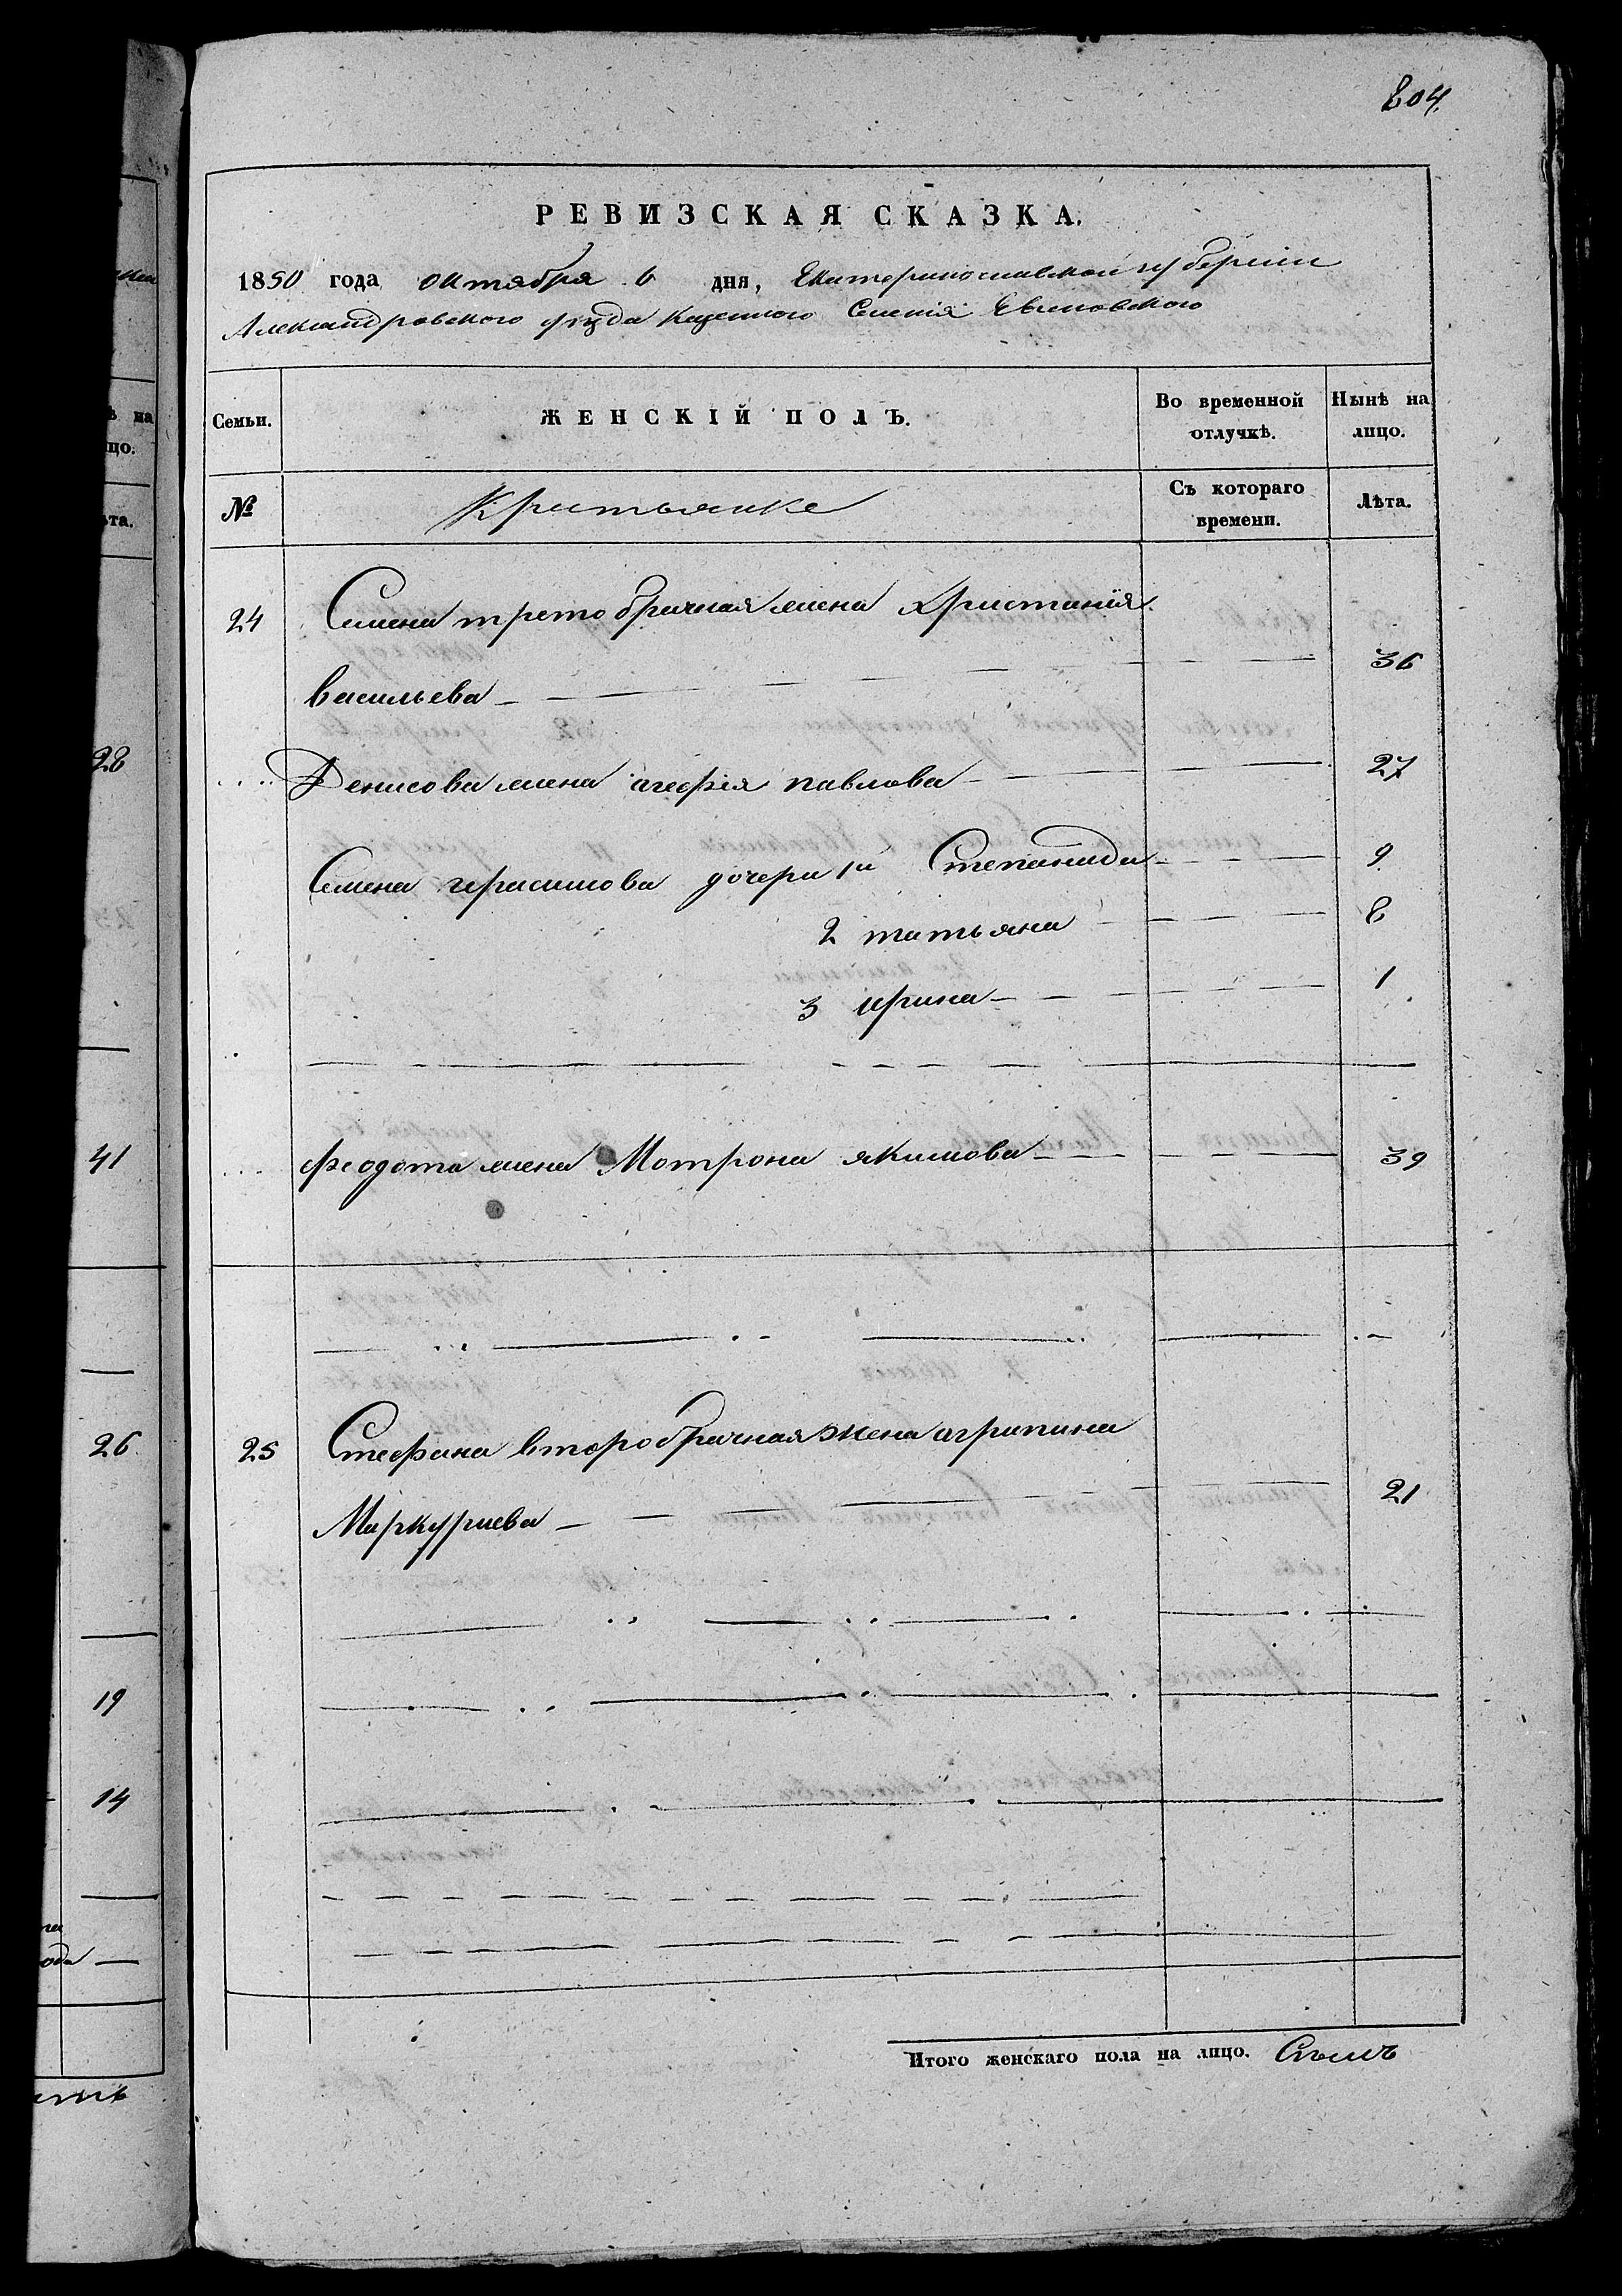 804.
РЕВИЗСКАЯ СКАЗКА.
1850 года октября 6 дня, Екатеринославской губернии
Александровского уѣзда Казенного Селенія
Семьи.
ЖЕНСКІЙ ПОЛЪ.
Во временной отлучкѣ.
Нынѣ на лицо.
№
Съ котораго времени.
Лѣта.
24 Семена третобрачная жена Христинія
васильева 36
Денисова жена агефія павлова 27
Семена герасимова дочери 1я Степанида 9
2 татьяна 8
3 ирина 1
феодота жена Мотрона якимова 39
25 Стефана второбрачная жена агрипина
Меркуриева 21
Итого женскаго пола на лицо. Семь
ѣ на
цо.
ѣта.
28
41
26
19
14